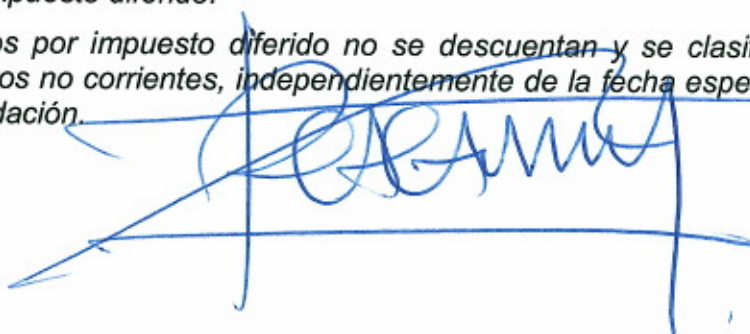 impuesto diferido.
os por impuesto diferido no se descuentan y se clasif
os no corrientes, independientemente de la fecha espe
dación.